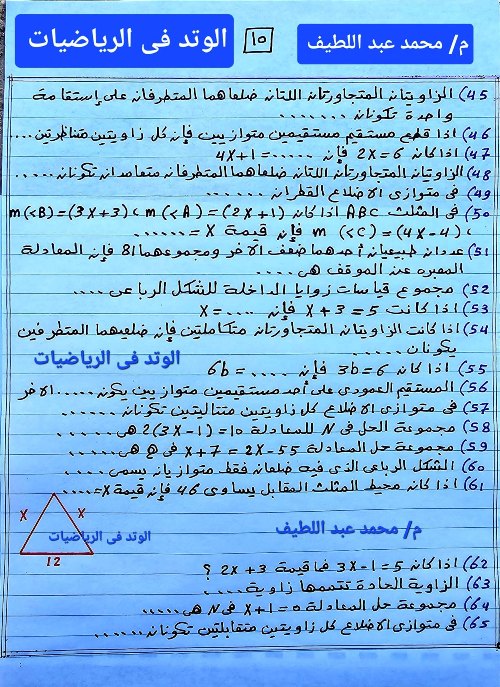 الوتد فى الرياضيات
١٥
م/ محمد عبد اللطيف
45) الزاويتان المتجاورتان اللتان ضلعاهما المتطرفان على إستقامة
واحدة تكونان .......
46) اذا قطع مستقيم مستقيمين متوازيين فإن كل زاويتين متناظرتين....
47) اذا كان 2X=6 فإن ...... =4X+1
48) الزاويتان المتجاورتان اللتان ضلعاهما المتطرفان متعامدان تكونان.....
49) فى متوازى الاضلاع القطران .......
50) فى المثلث ABC اذا كان m(<A)=(2X+1) ، m(<B)=(3X+3)
، m(<C)=(4X-4) فإن قيمة X =......
51) عددان طبيعيان أحدهما ضعف الآخر ومجموعهما 81 فإن المعادلة
المعبره عن الموقف هى ....
52) مجموع قياسات زوايا الداخلة للشكل الرباعى ....
53) اذا كانت X+3=5 فإن .... =X
54) اذا كانت الزاويتان المتجاورتان متكاملتين فإن ضلعيهما المتطرفين
يكونان .....
الوتد فى الرياضيات
55) اذا كان 3b=6 فإن ..... =6b
56) المستقيم العمودى على أحد مستقيمين متوازيين يكون ..... الآخر
57) فى متوازى الاضلاع كل زاويتين متتاليتين تكونان .....
58) مجموعة الحل فى N للمعادلة 2(3X-1)=10 هى .....
59) مجموعة حل المعادلة X+7=2X-55 فى Q هى .....
60) الشكل الرباعى الذى فيه ضلعان فقط متوازيان يسمى .....
61) اذا كان محيط المثلث المقابل يساوى 46 فإن قيمة X=....
X
X
الوتد فى الرياضيات
م/ محمد عبد اللطيف
12
62) اذا كان 3X-1=5 فما قيمة 2X+3 ؟
63) الزاوية الحادة تتممها زاوية ....
64) مجموعة حل المعادلة X+1=0 فى N هى .....
65) فى متوازى الاضلاع كل زاويتين متقابلتين تكونان .......